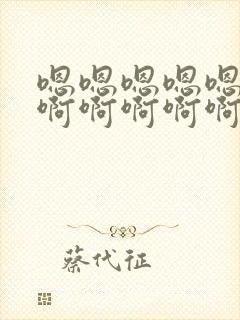 嗯嗯嗯嗯嗯
啊啊啊啊啊
蔡代征